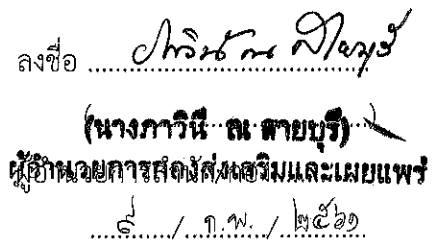 ลงชื่อ ภาวินี ณ สายบุรี
(นางภาวินี ณ สายบุรี)
ผู้อำนวยการกองส่งเสริมและเผยแพร่
๙ / ก.พ. / ๒๕๖๑